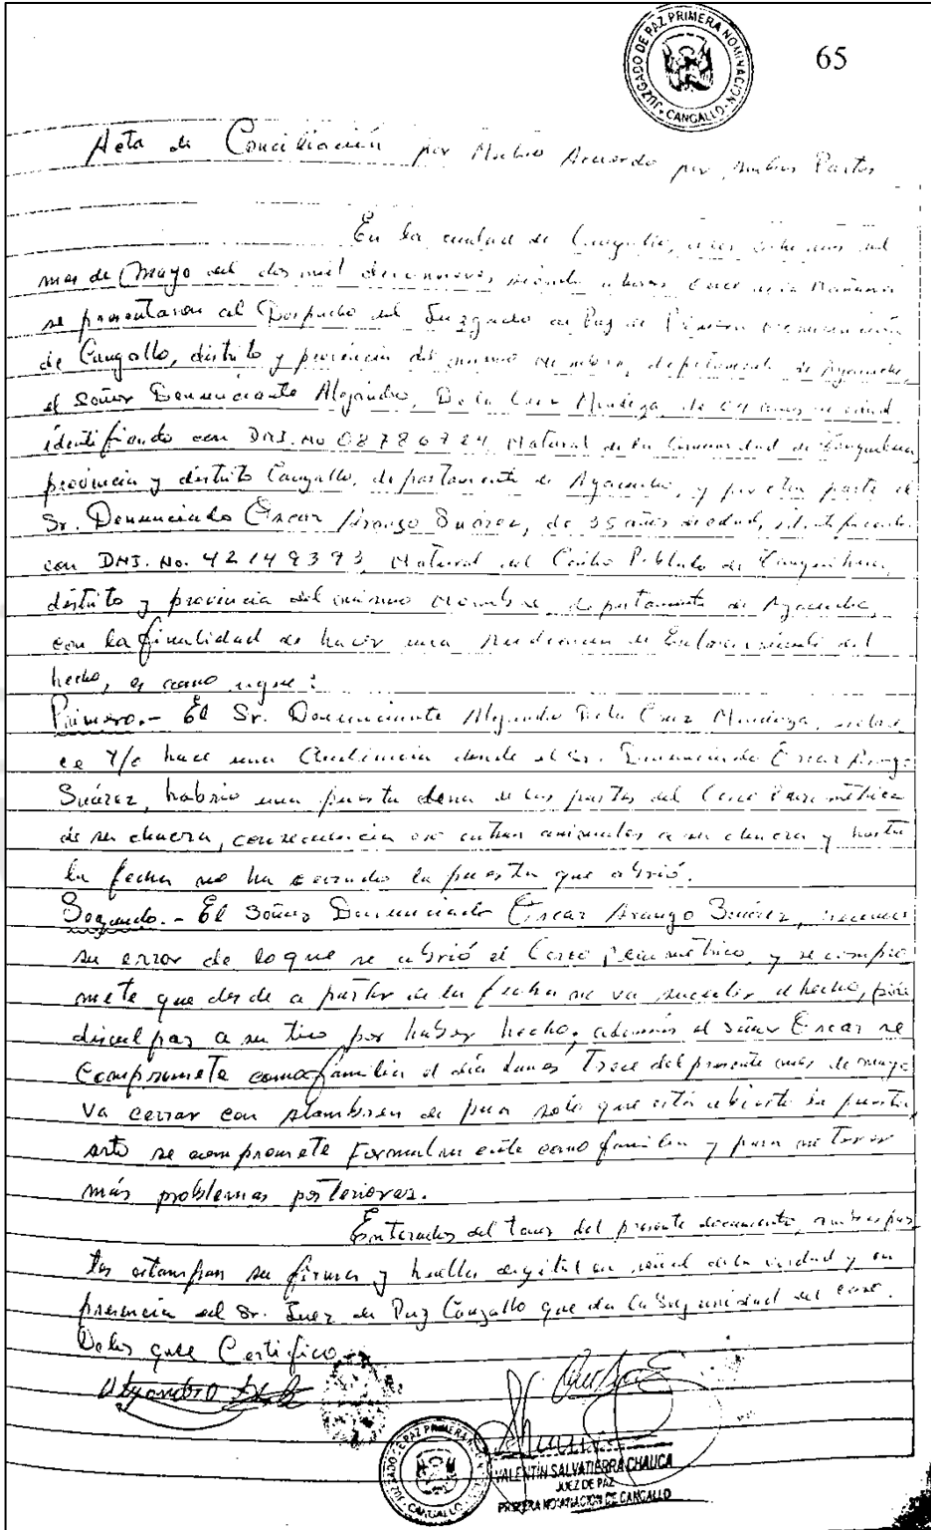 JUZGADO DE PAZ PRIMERA NOMINACIÓN - CANGALLO -
65
Acta de Conciliación por Mutuo Acuerdo por Ambas Partes
En la ciudad de Cangallo, a los ocho días del
mes de Mayo del dos mil diecinueve, siendo a horas once de la Mañana
se presentaron al Despacho del Juzgado de Paz de Primera Nominación
de Cangallo, distrito y provincia del mismo nombre, departamento de Ayacucho,
el Señor Denunciante Alejandro, De la Cruz Mendoza, de años de edad
identifiando con DNI. No Natural de la Comunidad de
provincia y distrito Cangallo, departamento de Ayacucho, y por otra parte el
Sr. Denunciado Óscar Arango Suárez, de 35 años de edad, identificado
con DNI. No. 42149393, Natural del Centro Poblado de
distrito y provincia del mismo nombre, departamento de Ayacucho,
con la finalidad de hacer una de del
hecho, es como sigue:
Primero.- El Sr. Denunciante Alejandro De la Cruz Mendoza,
ce y/o hace una Audiencia donde el Sr. Denunciado Óscar Arango
Suárez, habrio una puerta de las partes del Cerco Perimétrico
de su chacra, consecuencia entran animales a su chacra y hasta
la fecha no ha cerrado la puerta que abrió.
Segundo.- El Señor Denunciado Óscar Arango Suárez, reconoce
su error de lo que se abrió el Cerco Perimétrico, y se compro
mete que desde a partir de la fecha no va suceder el hecho, pide
disculpas a su tío por haber hecho, además el señor Óscar se
compromete como familia el día lunes Trece del presente mes de mayo
va cerrar con alambren de pua solo que está abierto la puerta,
esto se compromete formalmente como familia y para no tener
más problemas posteriores.
Enterados del tenor del presente documento, ambas par
tes estampan su firma y huella digital en señal de la verdad y en
presencia del Sr. Juez de Paz Cangallo que da la Seguridad del caso.
De los que Certifico.
Alejandro
JUZGADO DE PAZ PRIMERA NOMINACIÓN - CANGALLO -
VALENTÍN SALVATIERRA CHAUCA
JUEZ DE PAZ
PRIMERA NOMINACIÓN DE CANGALLO